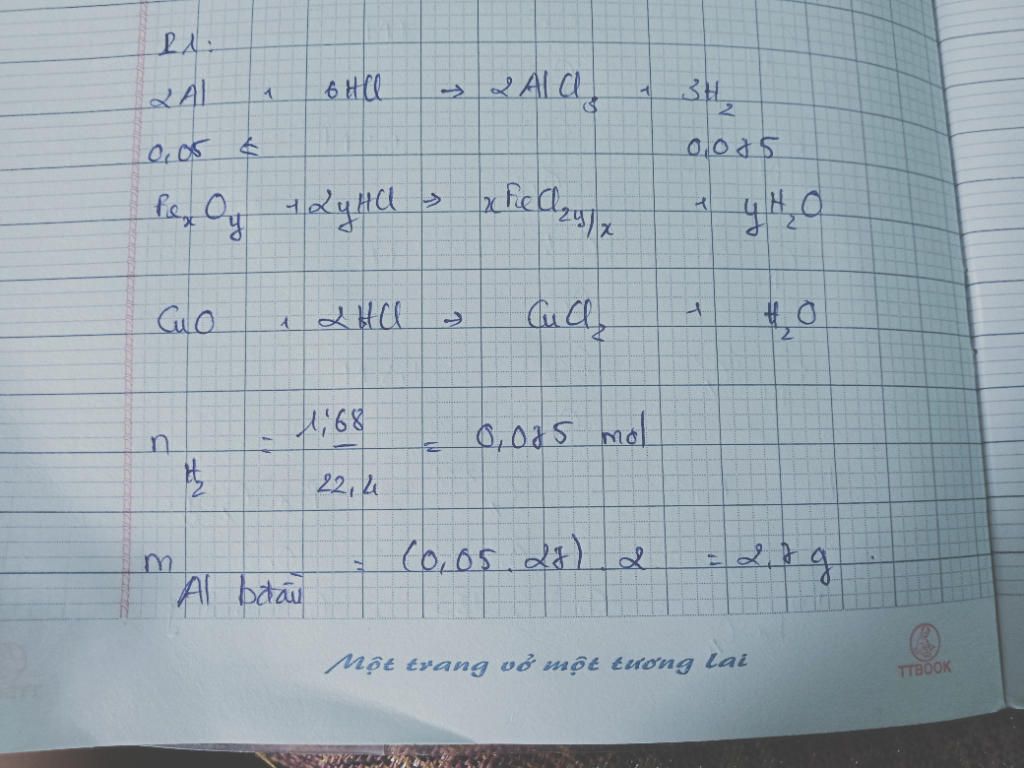 P1:
2Al + 6HCl → 2AlCl₃ + 3H₂
0,05 ← 0,075
FeₓOᵧ + 2yHCl → xFeCl₂ᵧ/ₓ + yH₂O
CuO + 2HCl → CuCl₂ + H₂O
n H₂ = 1,68 / 22,4 = 0,075 mol
m Al bđầu = (0,05 . 27) . 2 = 2,7 g .
Một trang vở một tương lai
TTBOOK